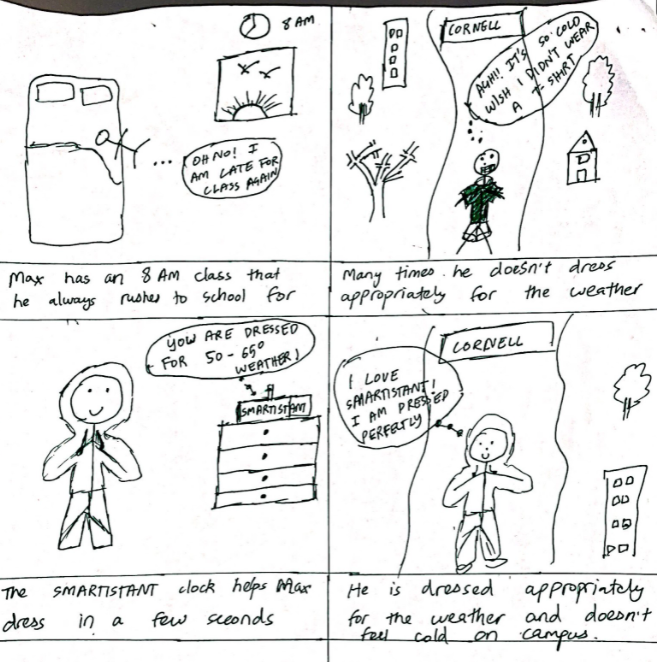 8 AM
OH NO! I
AM LATE FOR
CLASS AGAIN
Max has an 8 AM class that
he always rushes to school for
CORNELL
AGH!! IT'S SO COLD
WISH I DIDN'T WEAR
A T-SHIRT
Many times he doesn't dress
appropriately for the weather
YOU ARE DRESSED
FOR 50-65°
WEATHER!
SMARTISTANT
The SMARTISTANT clock helps Max
dress in a few seconds
CORNELL
I LOVE
SMARTISTANT!
I AM DRESSED
PERFECTLY
He is dressed appropriately
for the weather and doesn't
feel cold on campus.